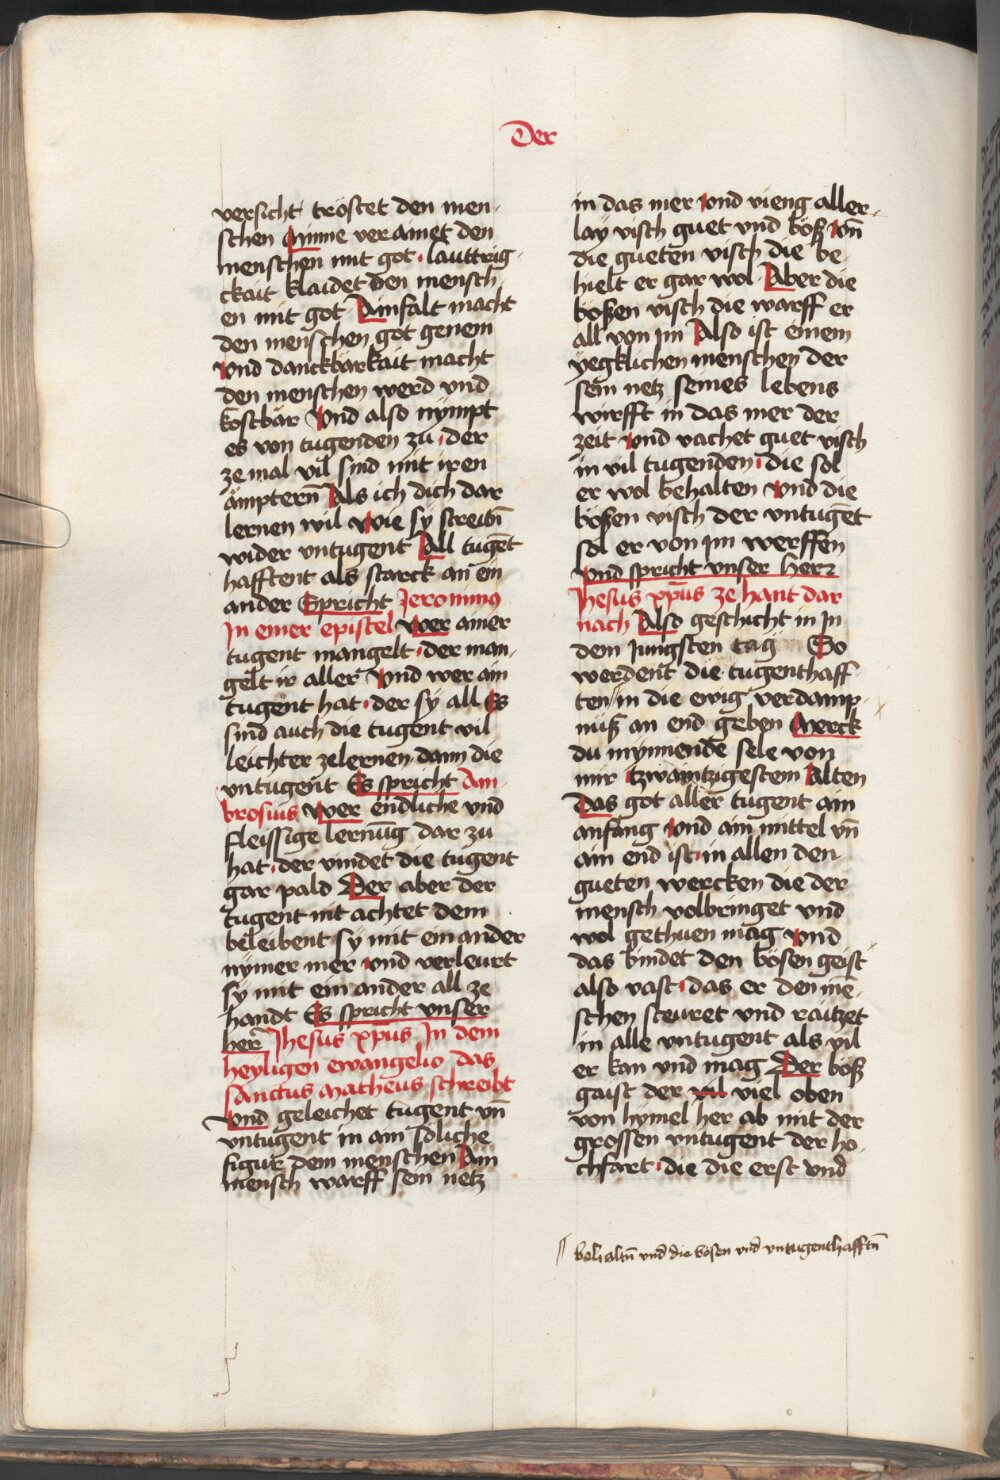 Der
versicht tröstet den men-
schen Minne veramet den
menschen mit got lauttrig-
ckait klaidet den mensch
en mit got Ainfalt macht
den menschen got genem
Vnd danckbärkait macht
den menschen werd vnd
kostbär Vnd also nympt
es von tugenden zu der
ze mal vil sind mit iren
ämptern̄ Als ich dich dar
lernen wil Wie sy streitn̄
wider vntugent All tugēt
hafftent als starck an ein
ander Spricht Jeronimus
In einer epistel Wer ainer
tugent mangelt der man-
gelt ir aller Vnd wer ain
tugent hat der sy all Es
sind auch die tugent vil
leichter zelernen dann die
vntugent Es spricht Am-
brosius Wer endliche vnd
fleissige lernūg dar zu
hat der vindet die tugent
gar pald Der aber der
tugent nit achtet dem
beleibent sy mit ein ander
nymer mer vnd verleurt
sy mit ein ander all ze
handt Es spricht vnser
her̄ Jhesus xp̄us In dem
heyligen ewangelio das
Sanctus Matheus schreibt
Vnd geleichet tugent vn̄
vntugent in ain sőliche
figur Dem menschen Ain
mensch warff sein netz
in das mer Vnd vieng aller-
lay visch guet vnd böß Vn̄
die gueten visch die be
hielt er gar wol Aber die
bößen visch die warff er
all von jm Also ist einem
yegklichen menschen der
sein netz seines lebens
wirfft in das mer der
zeit Vnd vachet guet visch
in vil tugenden die sol
er wol behalten Vnd die
bößen visch der vntugēt
sol er von jm werffen
Vnd spricht vnser herr
Jhesus xp̄us ze hant dar
nach Also geschicht in In
dem Jungsten tag So
werdent die tugenthaff
ten in die ewig verdamp-
nüß an end geben Merck
du mynnende sele von
mir tzwaintzigestem Alten
Das got aller tugent ain
anfang Vnd ain mittel vn̄
ain end ist in allen den
gueten wercken die der
mensch volbringet vnd
wol gethuen mag Vnd
das bindet den bösen geist
also vast das er den mē-
schen steuret vnd raitzet
in alle vntugent als vil
er kan vnd mag Der böß
gaist der vil viel oben
von hymel her ab mit der
grossen vntugent der ho-
chfart die die erst vnd
behaltn̄ vnd die bösen vnd vntugenthafftn̄